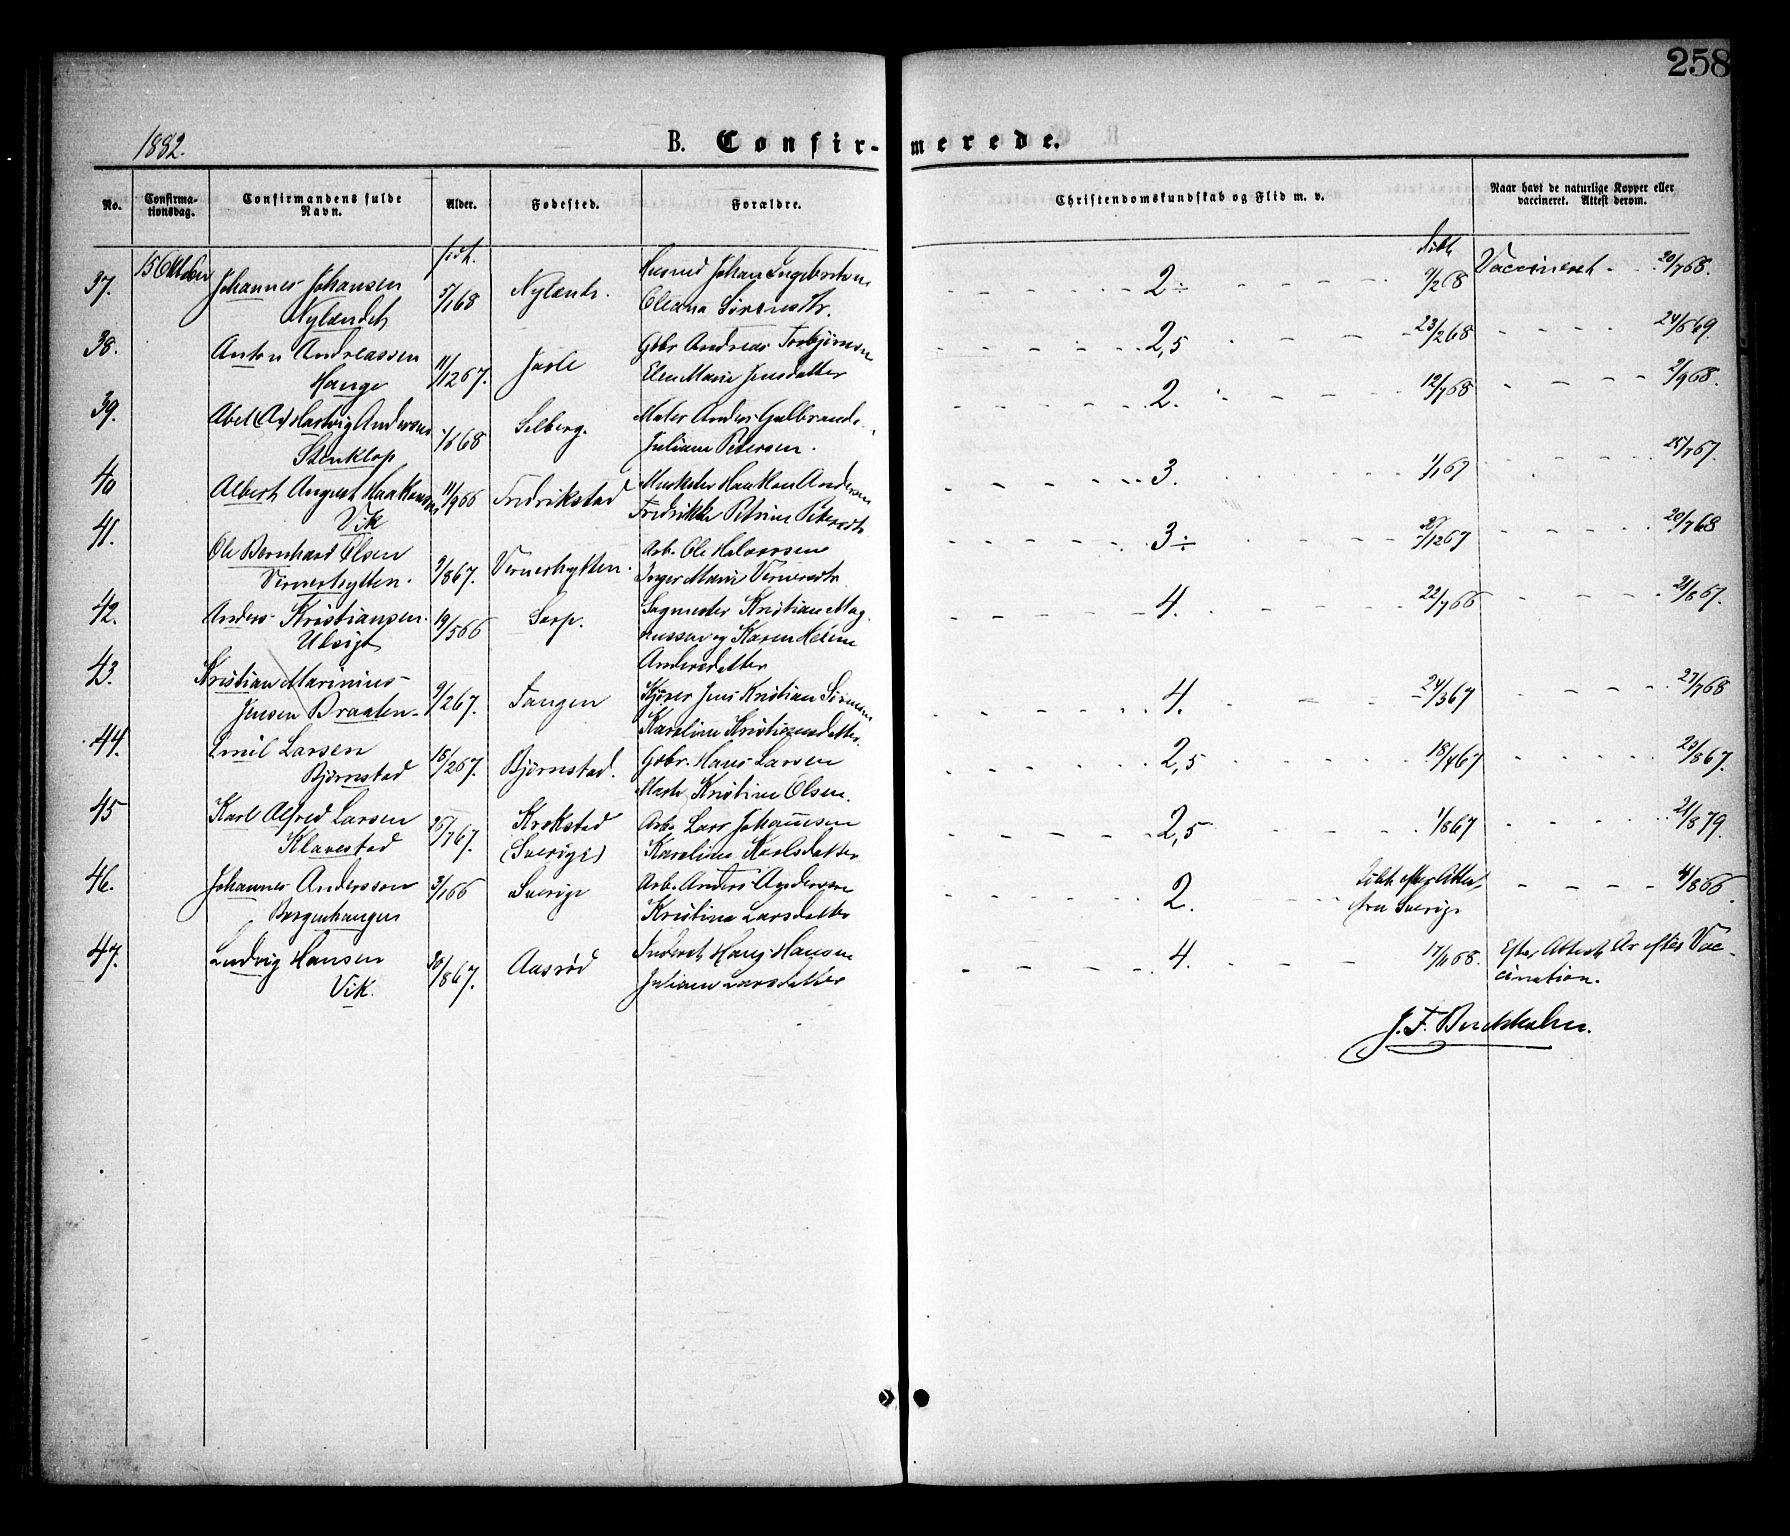 258
1882.
B. Confirmerede.
No.
Confirma-
tionsdag.
Confirmandens fulde
Navn.
Alder.
Fødested.
Forældre.
Christendomskundskab og Flid m. v.
Naar havt de naturlige Kopper eller
vaccineret. Attest derom.
37. 15 Oktober Johannes Johansen
Nylændet
født. 5/1 68 Nylændt. Husmd Johan Ingebretsen
Oleana Sørensdtr.
2 ÷ døbt 9/2 68 Vaccineret 20/7 68.
38. Anton Andreassen
Hauge
11/12 67. Jarle Gbr Andreas Torbjørnsen
Elen Marie Jensdatter
2,5 23/2 68 24/6 69.
39. Abel (Ax) Hartvig Andersen
Stenklop
/6 68 Selberg. Maler Anders Gulbrands.
Juliane Petersen.
2. 12/7 68 2/9 68.
40 Albert August Haakonsen
Vik
11/9 66 Fredrikstad Murmester Haakon Andersen
Fredrikke Petrine Petersdtr
3. 1/1 67 25/7 67.
41. Ole Bernhard Olsen
Vernerhytten.
9/8 67. Vernerhytten. Arb. Ole Halvorsen
Inger Marie Vernersdtr
3 ÷ 27/12 67 20/7 68
42. Anders Kristiansen
Utsigt
19/5 66 Sarp. Sagmester Kristian Mag
nussen og Karen Helene
Andersdatter
4. 22/7 66 21/8 67.
43. Kristian Marinius
Jensen Braaten
9/2 67. Tangen Kjører Jens Kristian Sørensen
Karoline Kristiansdatter.
4. 24/3 67 27/7 68
44. Emil Larsen
Bjørnstad
15/2 67. Bjørnstad. Gbr. Hans Larsen
Marte Kristine Olsen.
2,5 18/4 67 23/8 67.
45 Karl Alfred Larsen
Klavestad
25/7 67. Krokstad
(Sverige) Arb. Lars Johannsen
Karoline Karlsdatter
2,5 1/8 67 21/8 79.
46. Johannes Andersson
Borgenhaugen
3/1 66 Sverige Arb. Anders Andersen
Kristina Larsdatter
2. døbt efter Attest
fra Sverige 4/8 66
47. Ludvig Hansen
Vik.
30/8 67. Aasrød Inderst Hans Hansen
Juliane Larsdatter
4. 17/11 68. Efter Attest Ar efter Vac-
cination.
J. F. Buckholm.